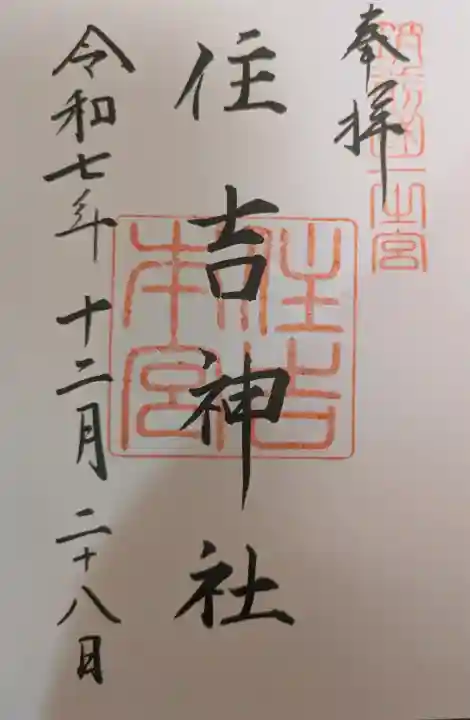 奉拝
筑前国一之宮
住吉神社
住吉本宮
令和七年十二月二十八日